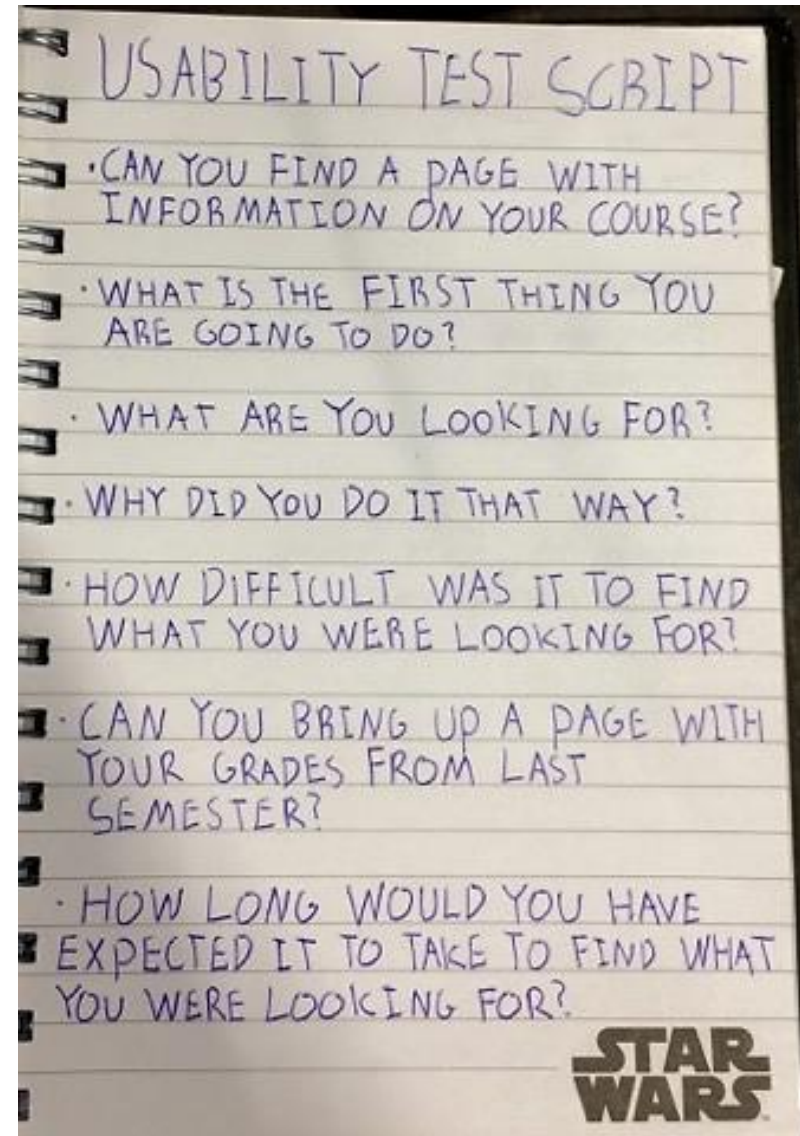 USABILITY TEST SCRIPT
·CAN YOU FIND A PAGE WITH
INFORMATION ON YOUR COURSE?
·WHAT IS THE FIRST THING YOU
ARE GOING TO DO?
·WHAT ARE YOU LOOKING FOR?
·WHY DID YOU DO IT THAT WAY?
·HOW DIFFICULT WAS IT TO FIND
WHAT YOU WERE LOOKING FOR?
·CAN YOU BRING UP A PAGE WITH
YOUR GRADES FROM LAST
SEMESTER?
·HOW LONG WOULD YOU HAVE
EXPECTED IT TO TAKE TO FIND WHAT
YOU WERE LOOKING FOR?
STAR
WARS